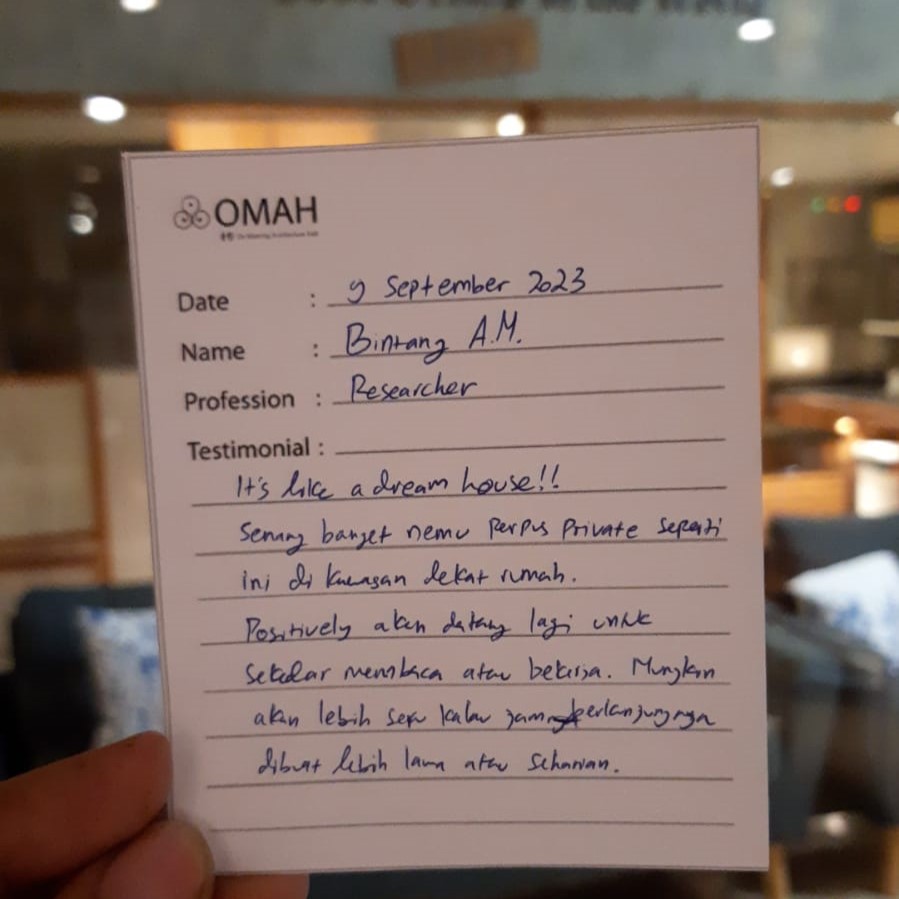 OMAH
Date : 9 September 2023
Name : Bintang A.M.
Profession : Researcher
Testimonial :
It's like a dream house!!
Senang banget nemu Perpus Private seperti
ini di kawasan dekat rumah.
Positively akan datang lagi untuk
sekedar membaca atau bekerja. Mungkin
akan lebih seru kalau jam berkunjungnya
dibuat lebih lama atau seharian.